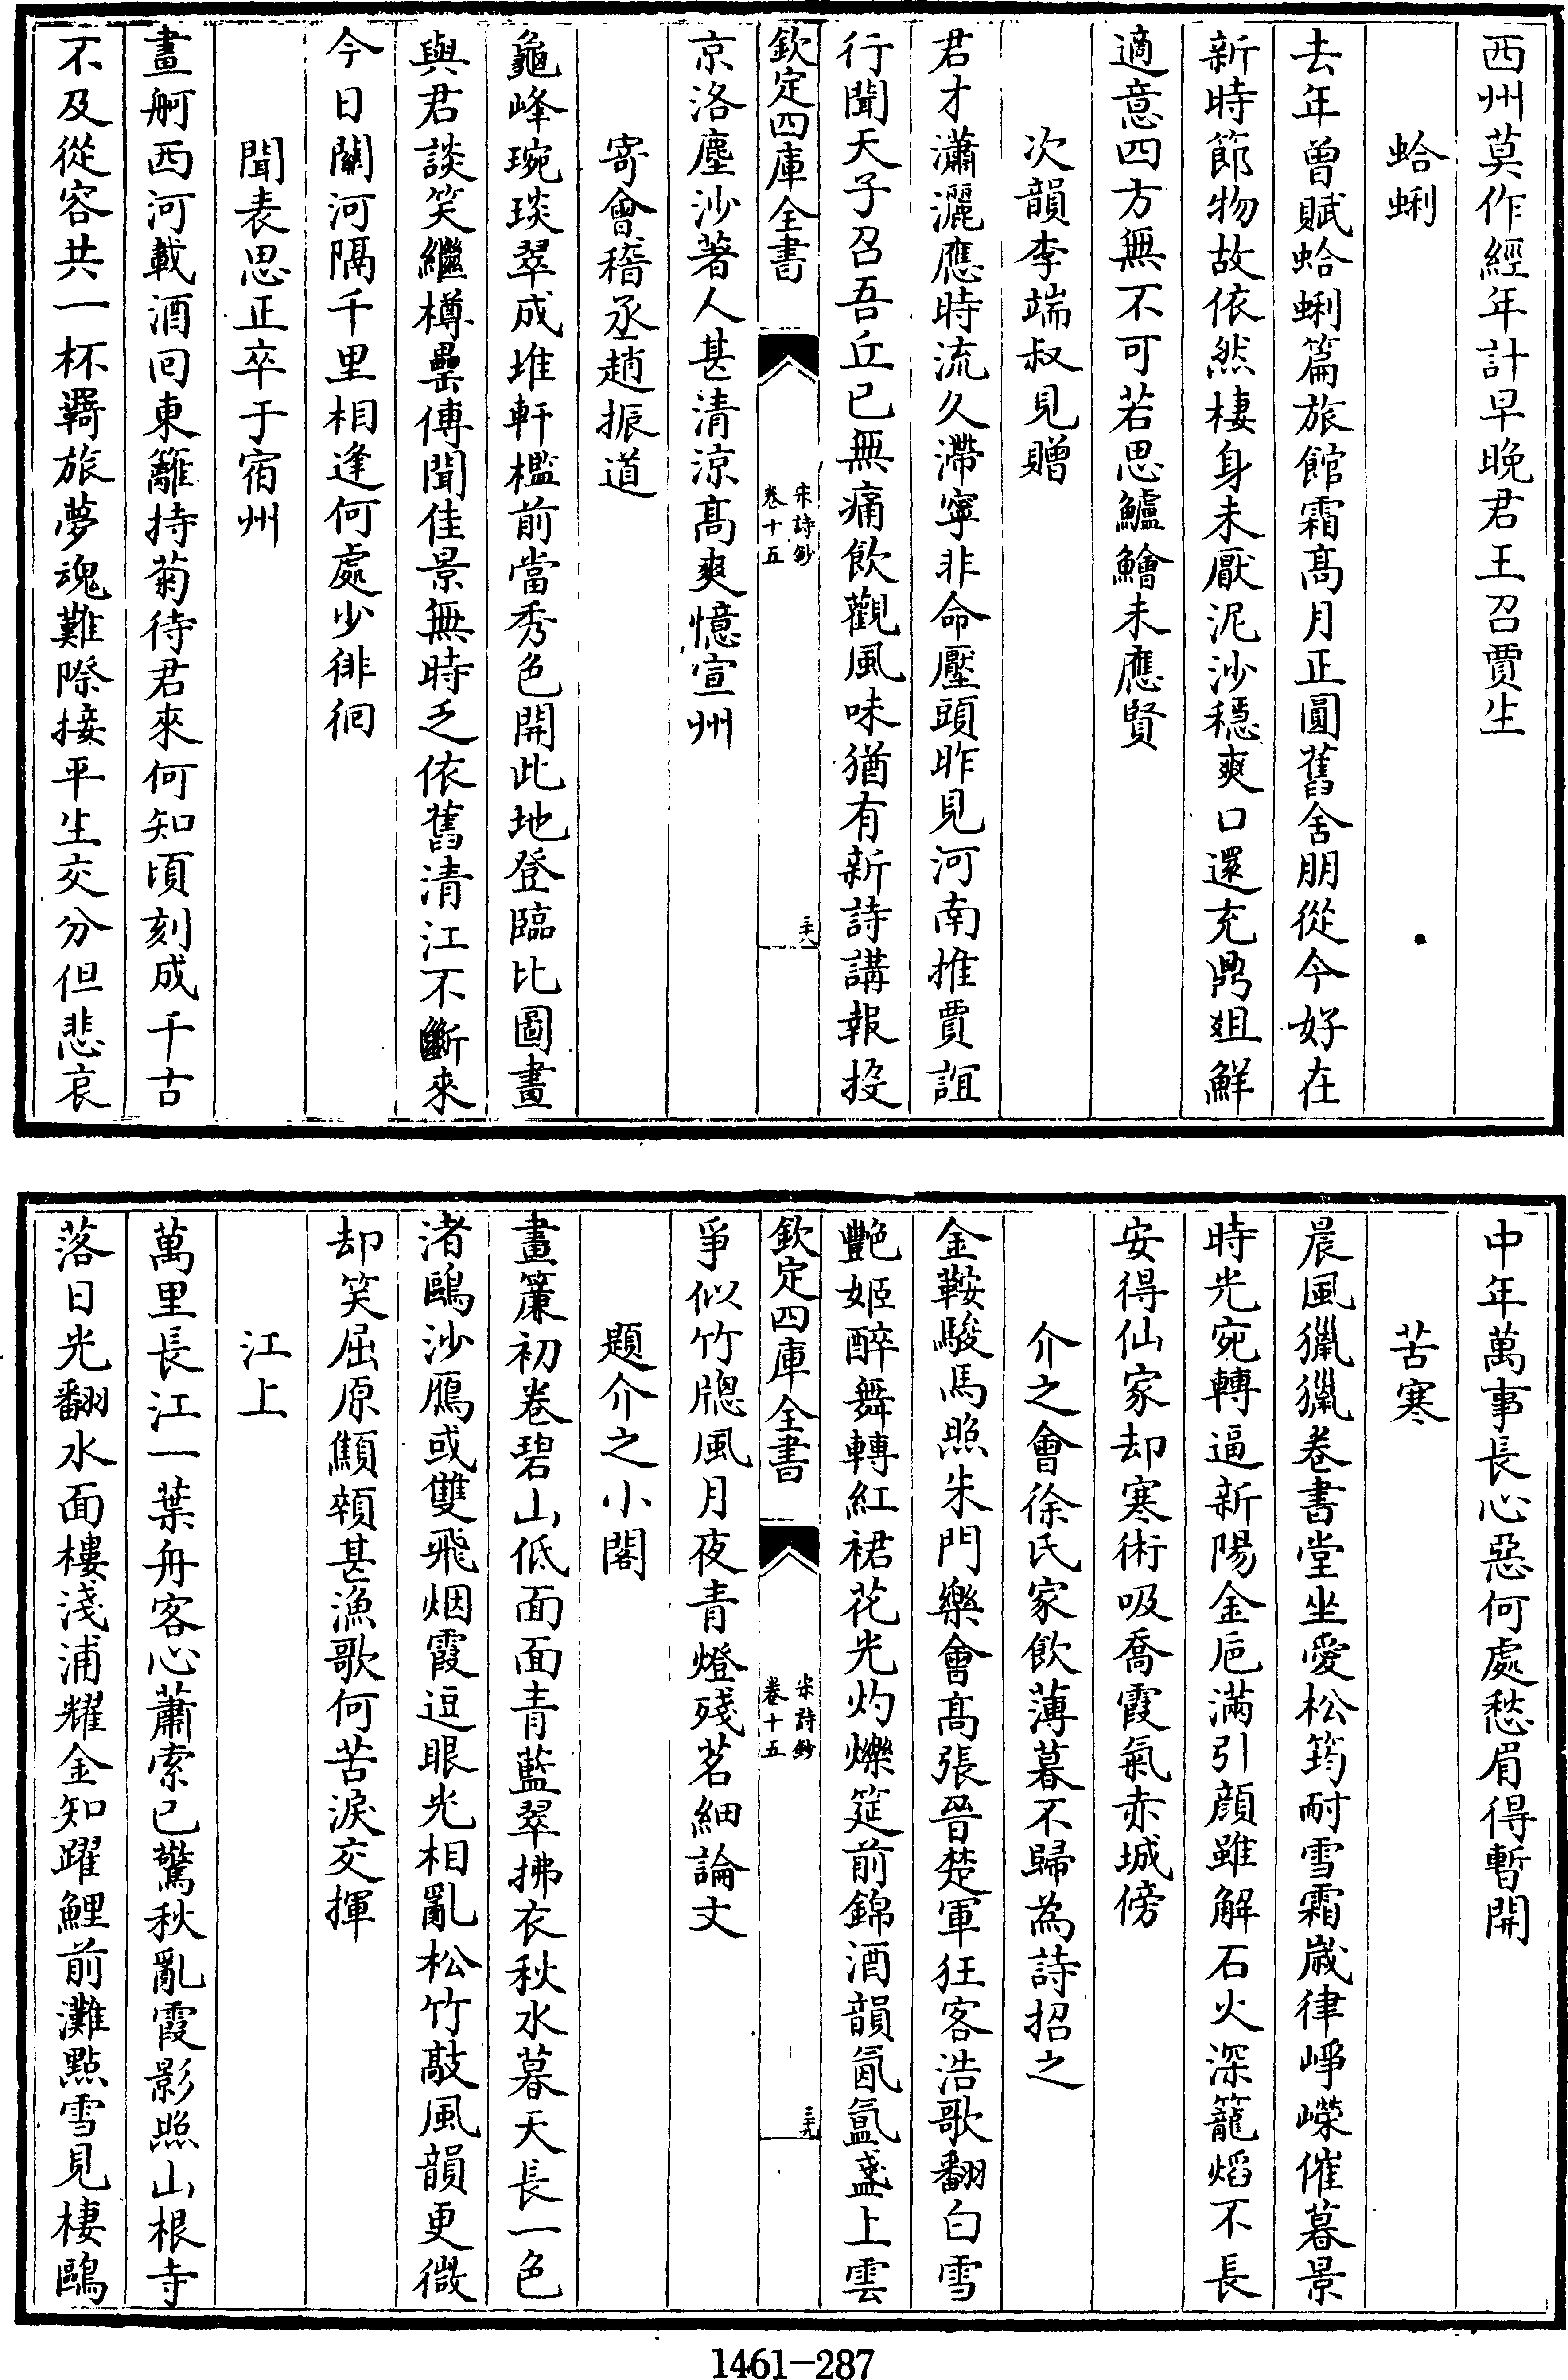 西州莫作經年計早晚君王召賈生
蛤蜊
去年曾賦蛤蜊篇旅館霜髙月正圓舊舍朋從今好在
新時節物故依然棲身未厭泥沙穩爽口還充鼎俎鮮
適意四方無不可若思鱸鱠未應賢
次韻李端叔見贈
君才瀟灑應時流久滯寧非命壓頭昨見河南推賈誼
行聞天子召吾丘已無痛飲觀風味猶有新詩講報投
欽定四庫全書
宋詩鈔
卷十五
三十八
京洛塵沙著人甚清涼髙爽憶宣州
寄會稽丞趙振道
龜峰琬琰翠成堆軒檻前當秀色開此地登臨比圖畫
與君談笑繼樽罍傳聞佳景無時乏依舊清江不斷來
今日關河隔千里相逢何處少徘徊
聞表思正卒于宿州
畫舸西河載酒回東籬持菊待君來何知頃刻成千古
不及從容共一杯羇旅夢魂難際接平生交分但悲哀
中年萬事長心惡何處愁眉得暫開
苦寒
晨風獵獵卷書堂坐愛松筠耐雪霜嵗律崢嶸催暮景
時光宛轉逼新陽金巵滿引顔雖解石火深籠熖不長
安得仙家却寒術吸喬霞氣赤城傍
介之會徐氏家飲薄暮不歸為詩招之
金鞍駿馬照朱門樂會髙張晉楚軍狂客浩歌翻白雪
艷姬醉舞轉紅裙花光灼爍筵前錦酒韻氤氲盞上雲
欽定四庫全書
宋詩鈔
卷十五
三十九
爭似竹牕風月夜青燈殘茗細論文
題介之小閣
畫簾初卷碧山低面面青藍翠拂衣秋水暮天長一色
渚鷗沙鴈或雙飛烟霞逗眼光相亂松竹敲風韻更微
却笑屈原顦顇甚漁歌何苦淚交揮
江上
萬里長江一葉舟客心蕭索已驚秋亂霞影照山根寺
落日光翻水面樓淺浦耀金知躍鯉前灘點雪見棲鷗
1461-287